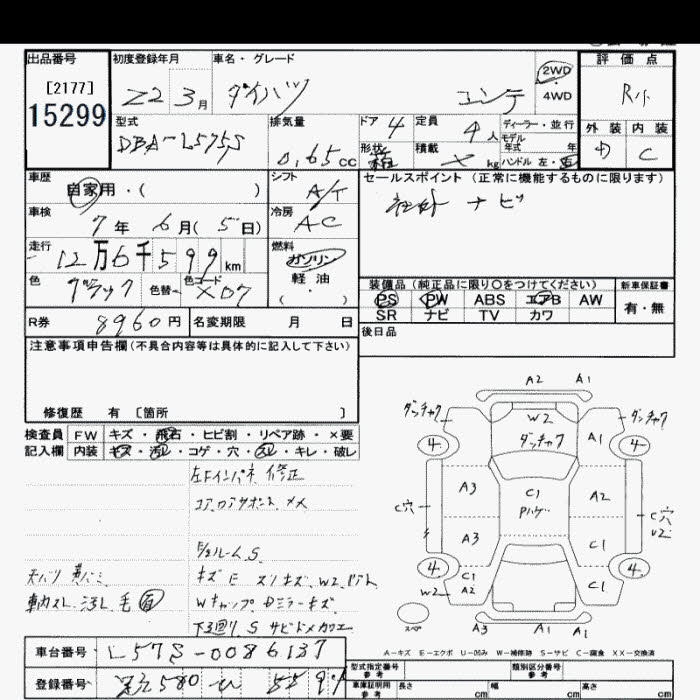 出品番号
[2177]
15299
初度登録年月
22 3月
車名・グレード
ダイハツ エッセ
2WD
4WD
評価点
R小
外装 内装
C
型式
DBA-L575S
排気量
0.65 cc
ドア 4
形状 箱
定員 4人
積載 kg
ディーラー・並行
モデル年式 年
ハンドル 左・右
車歴
自家用・( )
シフト
A/T
セールスポイント (正常に機能するものに限ります)
社外 ナビ
車検
7年 6月 (5日)
冷房
AC
走行
12万6千599km
燃料
ガソリン
軽油
( )
色
ブラック
色替
色コード
X07
装備品 (純正品に限り〇をつけてください)
新車保証書
PS PW ABS エアB AW
SR ナビ TV カワ
有・無
R券 8960円
名変期限 月 日
後日品
注意事項申告欄(不具合内容等は具体的に記入して下さい)
修復歴 有 [箇所 ]
検査員記入欄
FW キズ・飛石・ヒビ割・リペア跡・×要
内装 キズ・汚レ・コゲ・穴・スレ・キレ・破レ
左Fインパネ 修正
コア、ロアサポート、メメ
E/gルームS
キズE スリキズ、W2、ドアト
Wキャップ Dミラーキズ
下回りS サビドメカワエ
天バリ 黄バミ
車内スレ、汚レ、毛
A2 A1
ダンチャク ダンチャク
W2
ダンチャク
4 A1 4
A3 C1 A2
Pハゲ
C穴 C穴
A3 C1 W2
4 C1 C1 4
W2 A2
スペア
A3 A1 A1
A-キズ E-エクボ U-凹み W-補修跡 S-サビ C-腐食 XX-交換済
車台番号 L575S-0086137
登録番号
型式指定番号
参考
類別区分番号
参考
車庫証明用
参考
長さ cm
幅 cm
高さ cm